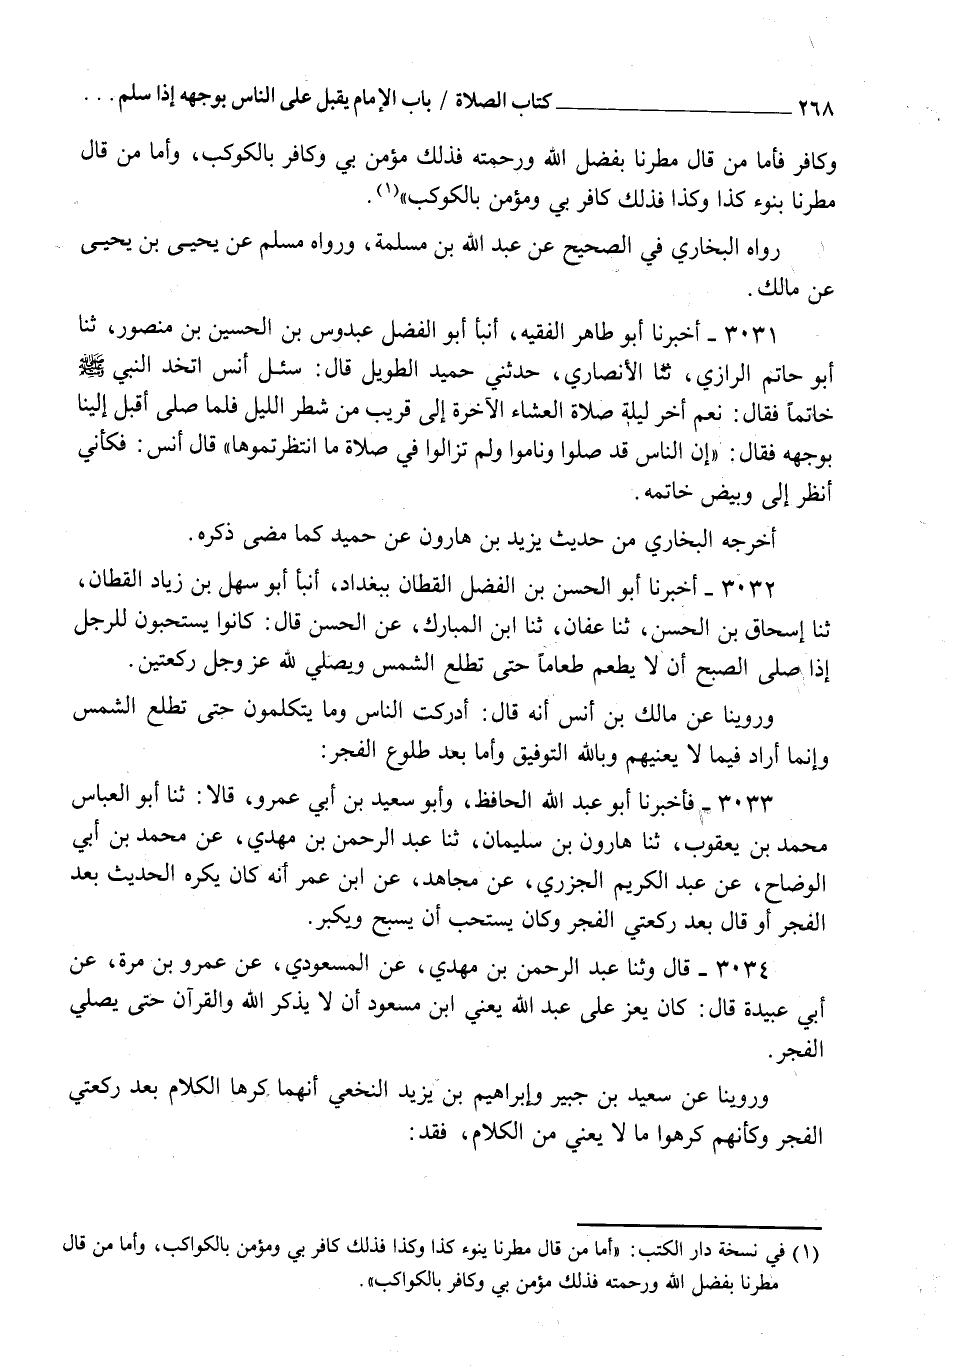 ٢٦٨ ـــــــــــــ كتاب الصلاة / باب الإمام يقبل على الناس بوجهه إذا سلم . . .
وكافر فأما من قال مطرنا بفضل الله ورحمته فذلك مؤمن بي وكافر بالكوكب، وأما من قال
مطرنا بنوء كذا وكذا فذلك كافر بي ومؤمن بالكوكب»(١).
رواه البخاري في الصحيح عن عبد الله بن مسلمة، ورواه مسلم عن يحيى بن يحيى
عن مالك.
٣٠٣١ ـ أخبرنا أبو طاهر الفقيه، أنبأ أبو الفضل عبدوس بن الحسين بن منصور، ثنا
أبو حاتم الرازي، ثنا الأنصاري، حدثني حميد الطويل قال: سئل أنس اتخد النبي ﷺ
خاتماً فقال: نعم أخر ليلة صلاة العشاء الآخرة إلى قريب من شطر الليل فلما صلى أقبل إلينا
بوجهه فقال: «إن الناس قد صلوا وناموا ولم تزالوا في صلاة ما انتظرتموها» قال أنس: فكأني
أنظر إلى وبيض خاتمه.
أخرجه البخاري من حديث يزيد بن هارون عن حميد كما مضى ذكره.
٣٠٣٢ ـ أخبرنا أبو الحسن بن الفضل القطان ببغداد، أنبأ أبو سهل بن زياد القطان،
ثنا إسحاق بن الحسن، ثنا عفان، ثنا ابن المبارك، عن الحسن قال: كانوا يستحبون للرجل
إذا صلى الصبح أن لا يطعم طعاماً حتى تطلع الشمس ويصلي لله عز وجل ركعتين.
وروينا عن مالك بن أنس أنه قال: أدركت الناس وما يتكلمون حتى تطلع الشمس
وإنما أراد فيما لا يعنيهم وبالله التوفيق وأما بعد طلوع الفجر:
٣٠٣٣ ـ فأخبرنا أبو عبد الله الحافظ، وأبو سعيد بن أبي عمرو، قالا: ثنا أبو العباس
محمد بن يعقوب، ثنا هارون بن سليمان، ثنا عبد الرحمن بن مهدي، عن محمد بن أبي
الوضاح، عن عبد الكريم الجزري، عن مجاهد، عن ابن عمر أنه كان يكره الحديث بعد
الفجر أو قال بعد ركعتي الفجر وكان يستحب أن يسبح ويكبر.
٣٠٣٤ ـ قال وثنا عبد الرحمن بن مهدي، عن المسعودي، عن عمرو بن مرة، عن
أبي عبيدة قال: كان يعز على عبد الله يعني ابن مسعود أن لا يذكر الله والقرآن حتى يصلي
الفجر.
وروينا عن سعيد بن جبير وإبراهيم بن يزيد النخعي أنهما كرها الكلام بعد ركعتي
الفجر وكأنهم كرهوا ما لا يعني من الكلام، فقد:
(١) في نسخة دار الكتب: «أما من قال مطرنا ينوء كذا وكذا فذلك كافر بي ومؤمن بالكواكب، وأما من قال
مطرنا بفضل الله ورحمته فذلك مؤمن بي وكافر بالكواكب».